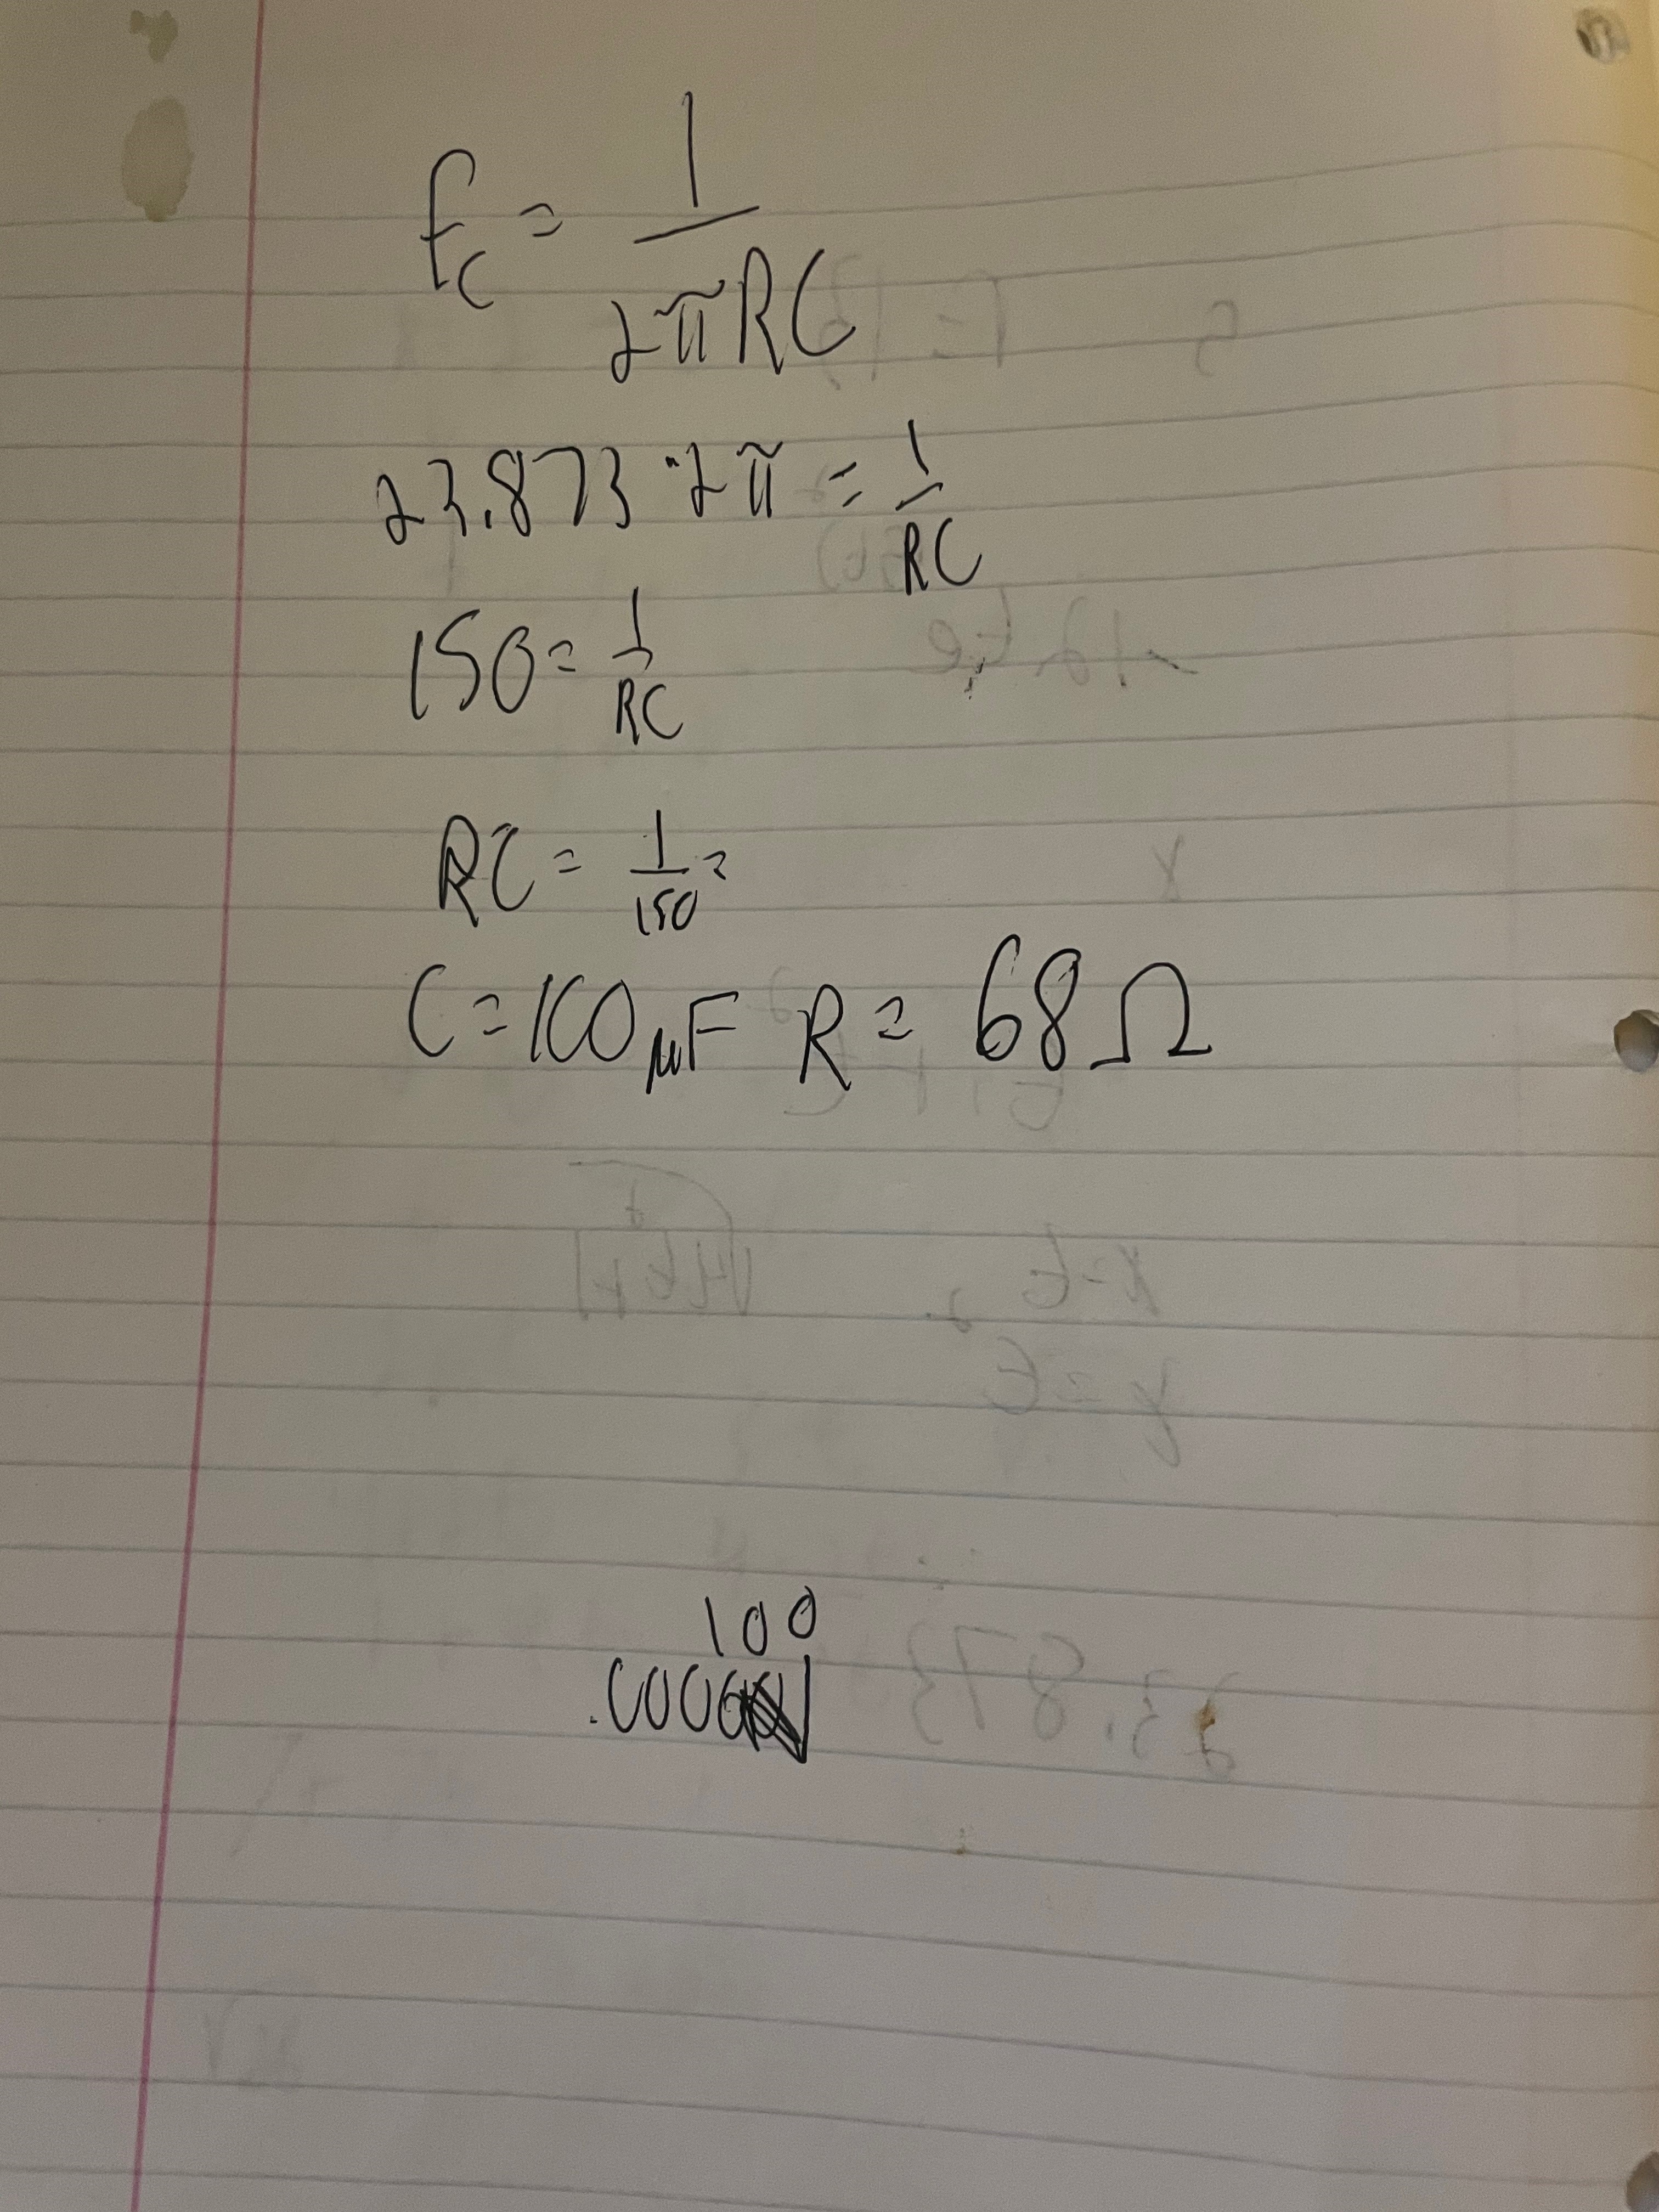 fc = 1/2πRC
23.873 · 2π = 1/RC
150 = 1/RC
RC = 1/150 =
C = 100μF R = 68Ω
100
23.873